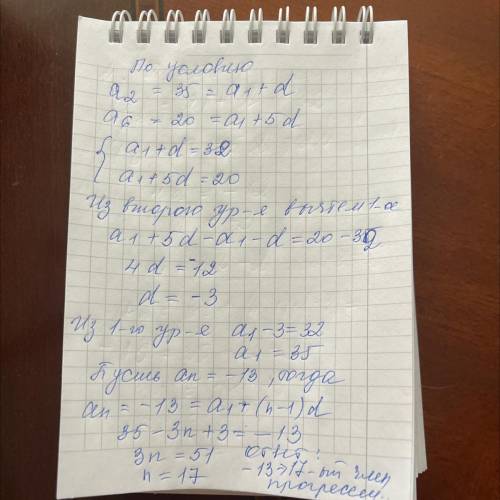 По условию
a₂ = 35 = a₁ + d
a₆ = 20 = a₁ + 5d
{ a₁ + d = 32
a₁ + 5d = 20
Из второго ур-я вычтем 1-ое
a₁ + 5d - a₁ - d = 20 - 32
4d = -12
d = -3
Из 1-го ур-я a₁ - 3 = 32
a₁ = 35
Пусть an = -13, тогда
an = -13 = a₁ + (n-1)d
35 - 3n + 3 = -13
3n = 51 ответ:
n = 17 -13 → 17-ый член
прогрессии.